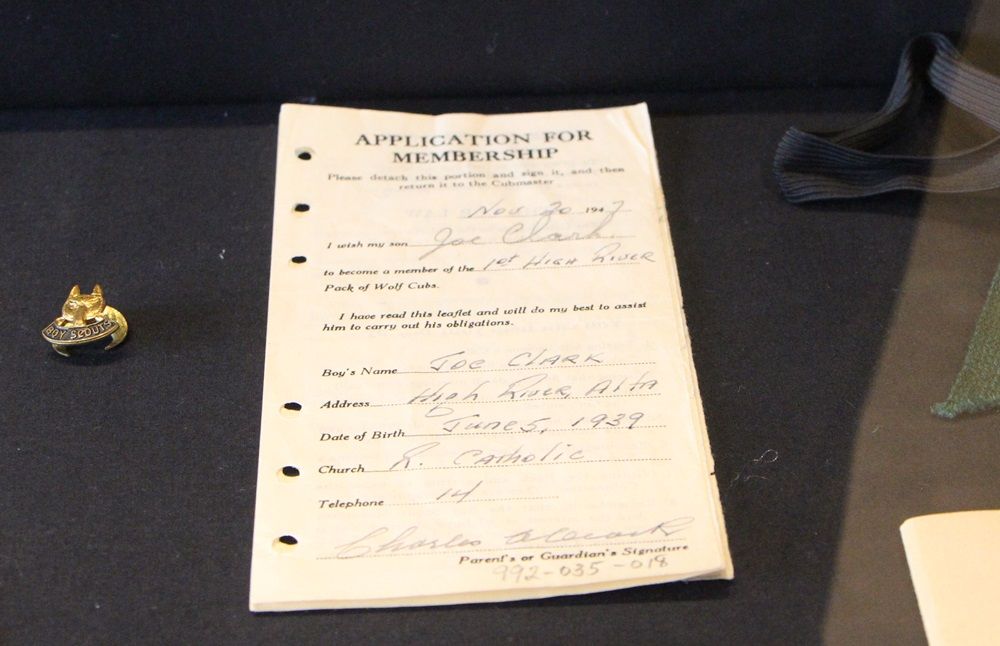 APPLICATION FOR
MEMBERSHIP
Please detach this portion and sign it, and then
return it to the Cubmaster
Nov 20 1947
I wish my son Joe Clark
to become a member of the 1st HIGH RIVER
Pack of Wolf Cubs.
I have read this leaflet and will do my best to assist
him to carry out his obligations.
Boy's Name JOE CLARK
Address HIGH RIVER, Alta
Date of Birth June 5, 1939
Church R. Catholic
Telephone 14
Charles
Parent's or Guardian's Signature
992-035-018
BOY SCOUTS